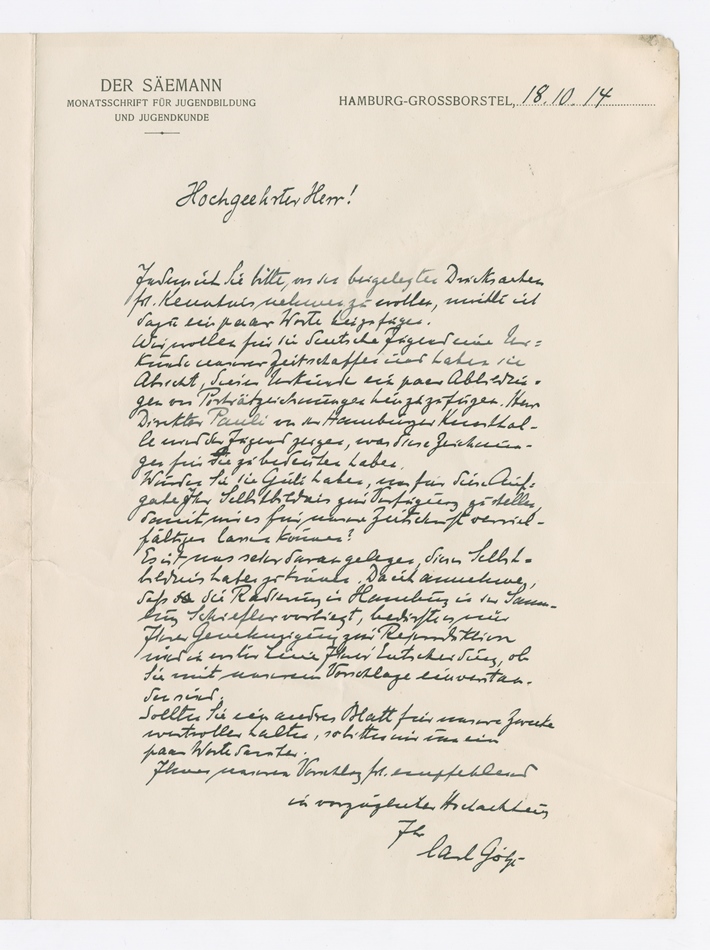 DER SÄEMANN
MONATSSCHRIFT FÜR JUGENDBILDUNG
UND JUGENDKUNDE
HAMBURG-GROSSBORSTEL, 18.10.14
Hochgeehrter Herr!
Indem ich Sie bitte, von den beigelegten Drucksachen
frl. Kenntnis nehmen zu wollen, möchte ich
dazu ein paar Worte beizufügen.
Wir wollen für die deutsche Jugend eine Ur=
kunde unserer Zeit schaffen und haben die
Absicht, dieser Urkunde ein paar Abbildun=
gen von Porträtzeichnungen hinzuzufügen. Herr
Direktor Pauli von der Hamburger Kunsthal-
le wird der Jugend zeigen, was diese Zeichnun-
gen für sie zu bedeuten haben.
Würden Sie die Güte haben, uns für diese Auf=
gabe Ihr Selbstbildnis zur Verfügung zu stellen,
damit wir es für unsere Zeitschrift verviel-
fältigen lassen können?
Es ist uns sehr daran gelegen, dieses Selbst=
bildnis haben zu können. Da ich annehme,
daß die Radierung in Hamburg in der Samm-
lung Schiefler vorliegt, bedürften wir
Ihrer Genehmigung zur Reproduktion
und in erster Linie Ihrer Entscheidung, ob
Sie mit unserem Vorschlage einverstan-
den sind.
Sollten Sie ein andres Blatt für unsere Zwecke
wertvoller halten, so bitten wir um ein
paar Worte darüber.
Ihnen unseren Vorschlag frl. empfehlend
in vorzüglicher Hochachtung
Ihr
Carl Götze